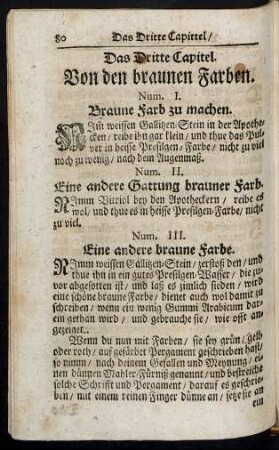 80 Das Dritte Capittel/
Das Dritte Capitel.
Von den braunen Farben.
Num. I.
Braune Farb zu machen.
NIm weissen Gallitzen-Stein in der Apothe-
cken/ reibe ihn gar klein/ und thue das Pul-
ver in heisse Presilgen-Farbe/ nicht zu viel
noch zu wenig/ nach dem Augenmaß.
Num. II.
Eine andere Gattung brauner Farb.
NImm Vitriol bey den Apotheckern/ reibe es
wol/ und thue es in heisse Presilgen-Farbe/ nicht
zu viel.
Num. III.
Eine andere braune Farbe.
NImm weissen Gallitzen-Stein/ zerstoß den/ und
thue ihn in ein gutes Presilgen-Wasser/ die zu-
vor abgesotten ist/ und laß es zimlich sieden/ wird
eine schöne braune Farbe/ dienet auch wol damit zu
schreiben/ wenn ein wenig Gummi Arabicum dar-
ein gethan wird/ und gebrauche sie/ wie offt an-
gezeiget.
Wenn du nun mit Farben/ sie sey grün/ gelb
oder roth/ auf gefärbet Pergament geschrieben hast/
so nimm/ nach deinem Gefallen und Meynung/ ei-
nen dünnen Mahler-Fürniß genannt/ und bestreiche
solche Schrifft und Pergament/ darauf es geschrie-
ben/ mit einem reinen Finger dünne an/ setze sie an
ein